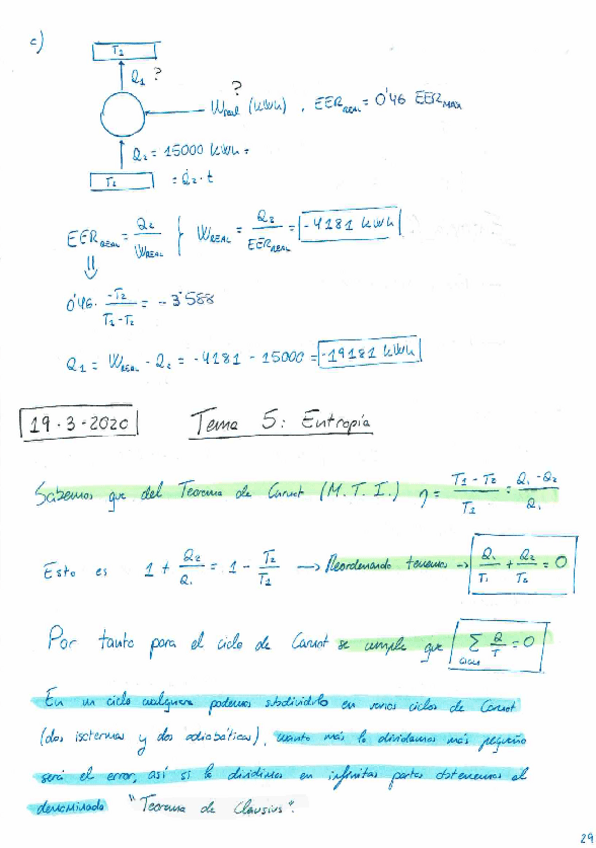 c)
T1
Q1 ?
?
Wreal (kWh) , EER REAL = 0'46 EER MAX
Q2 = 15000 kWh =
= Q̇2 · t
T2
EER REAL = Q2 / W REAL } W REAL = Q2 / EER REAL = -4181 kWh
⇓
0'46 · -T2 / T1-T2 = -3'588
Q1 = W REAL - Q2 = -4181 - 15000 = -19181 kWh
19·3-2020 Tema 5: Entropía
Sabemos que del Teorema de Carnot (M.T.I.) η = T1 - T2 / T1 = Q1 - Q2 / Q1
Esto es 1 + Q2/Q1 = 1 - T2/T1 → Reordenando tenemos → Q1/T1 + Q2/T2 = 0
Por tanto para el ciclo de Carnot se cumple que Σ Q/T = 0
CICLO
En un ciclo cualquiera podemos subdividirlo en varios ciclos de Carnot
(dos isotermas y dos adiabáticas), cuanto más lo dividamos más pequeño
será el error, así si lo dividimos en infinitas partes obtenemos el
denominado "Teorema de Clausius".
29